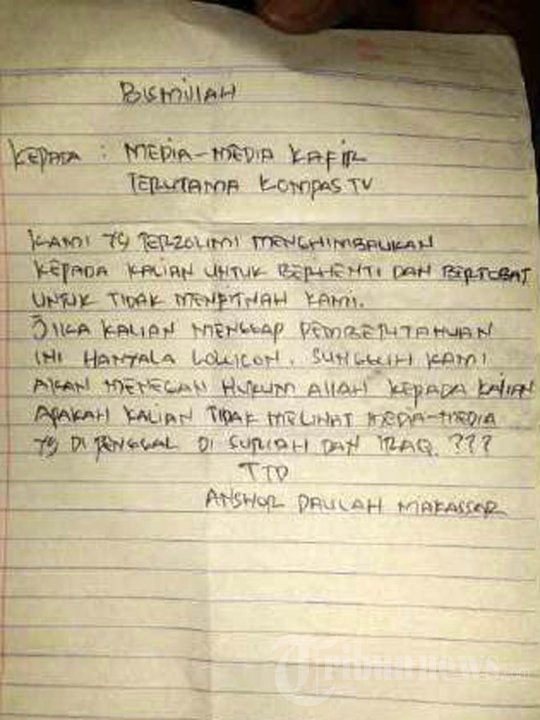 BISMILLAH
KEPADA : MEDIA-MEDIA KAFIR
TERUTAMA KOMPAS TV
KAMI YG TERZOLIMI MENGHIMBAUKAN
KEPADA KALIAN UNTUK BERHENTI DAN BERTOBAT
UNTUK TIDAK MENFITNAH KAMI.
JIKA KALIAN MENGGAP PEMBERITAHUAN
INI HANYALA LOLLICON, SUNGGUH KAMI
AKAN MENEGAN HUKUM ALLAH KEPADA KALIAN
APAKAH KALIAN TIDAK MELIHAT MEDIA-MEDIA
YG DI PENGGAL DI SURIAH DAN IRAQ ???
TTD
ANSHOR DAULAH MAKASSAR
Tribunnews.com